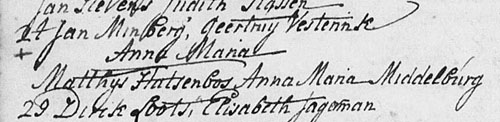 Jan Stevens Judith Tijssen
24 Jan Minberg, Geertruy Vesterink
+ Anna Maria
Matthys Hatsenbos Anna Maria Middelburg
29 Dirk Loots, Elisabeth Jageman